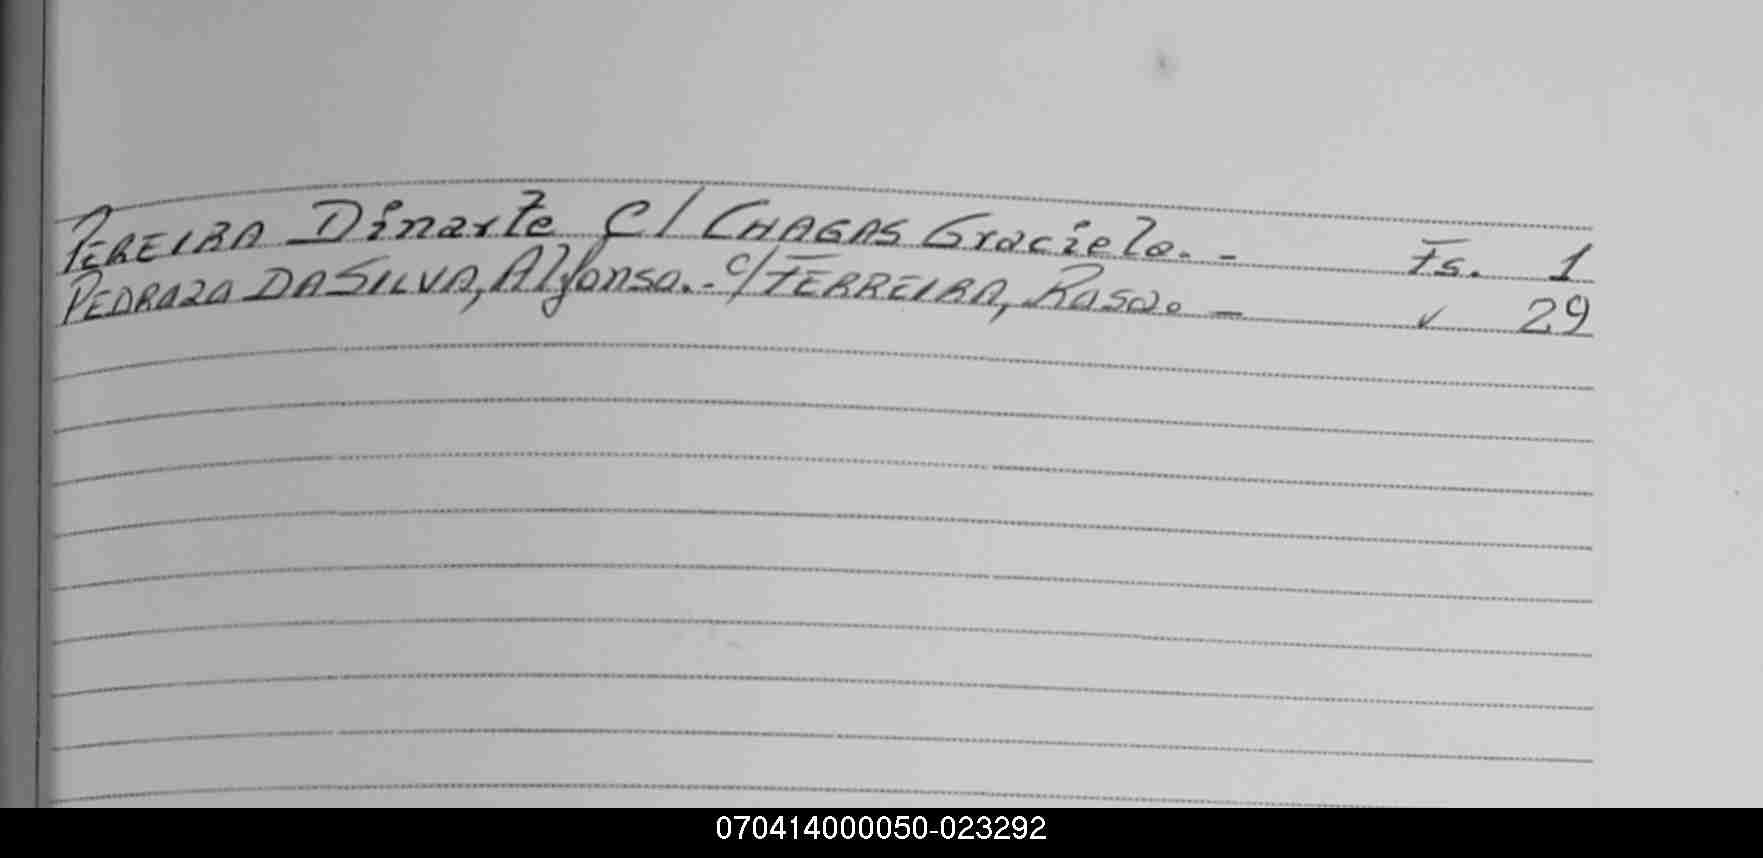 PEREIRA Dinarte C/ CHAGAS Graciela. - Fs. 1
PEDRAZA DA SILVA, Alfonso. - c/ FERREIRA, Rosa. - ✓ 29
070414000050-023292